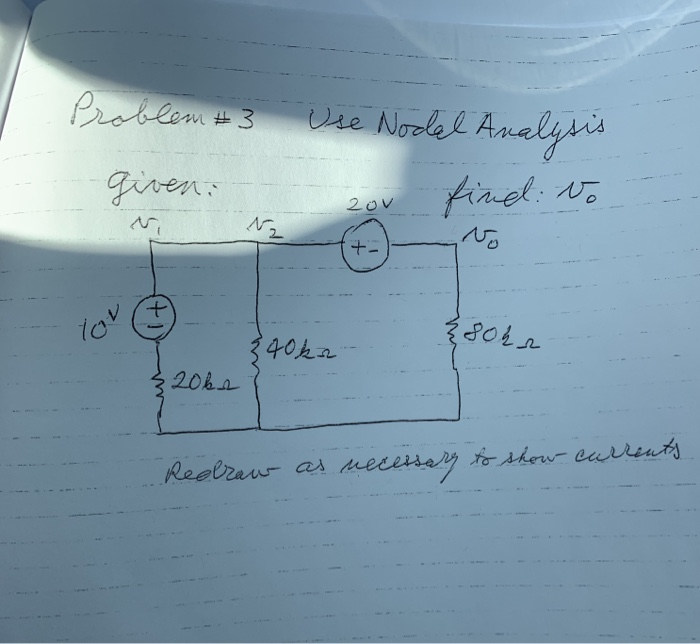 Problem # 3 Use Nodal Analysis
given: find: v₀
20V
v₁ v₂ + - v₀
10V + -
40kΩ 80kΩ
20kΩ
Redraw as necessary to show currents